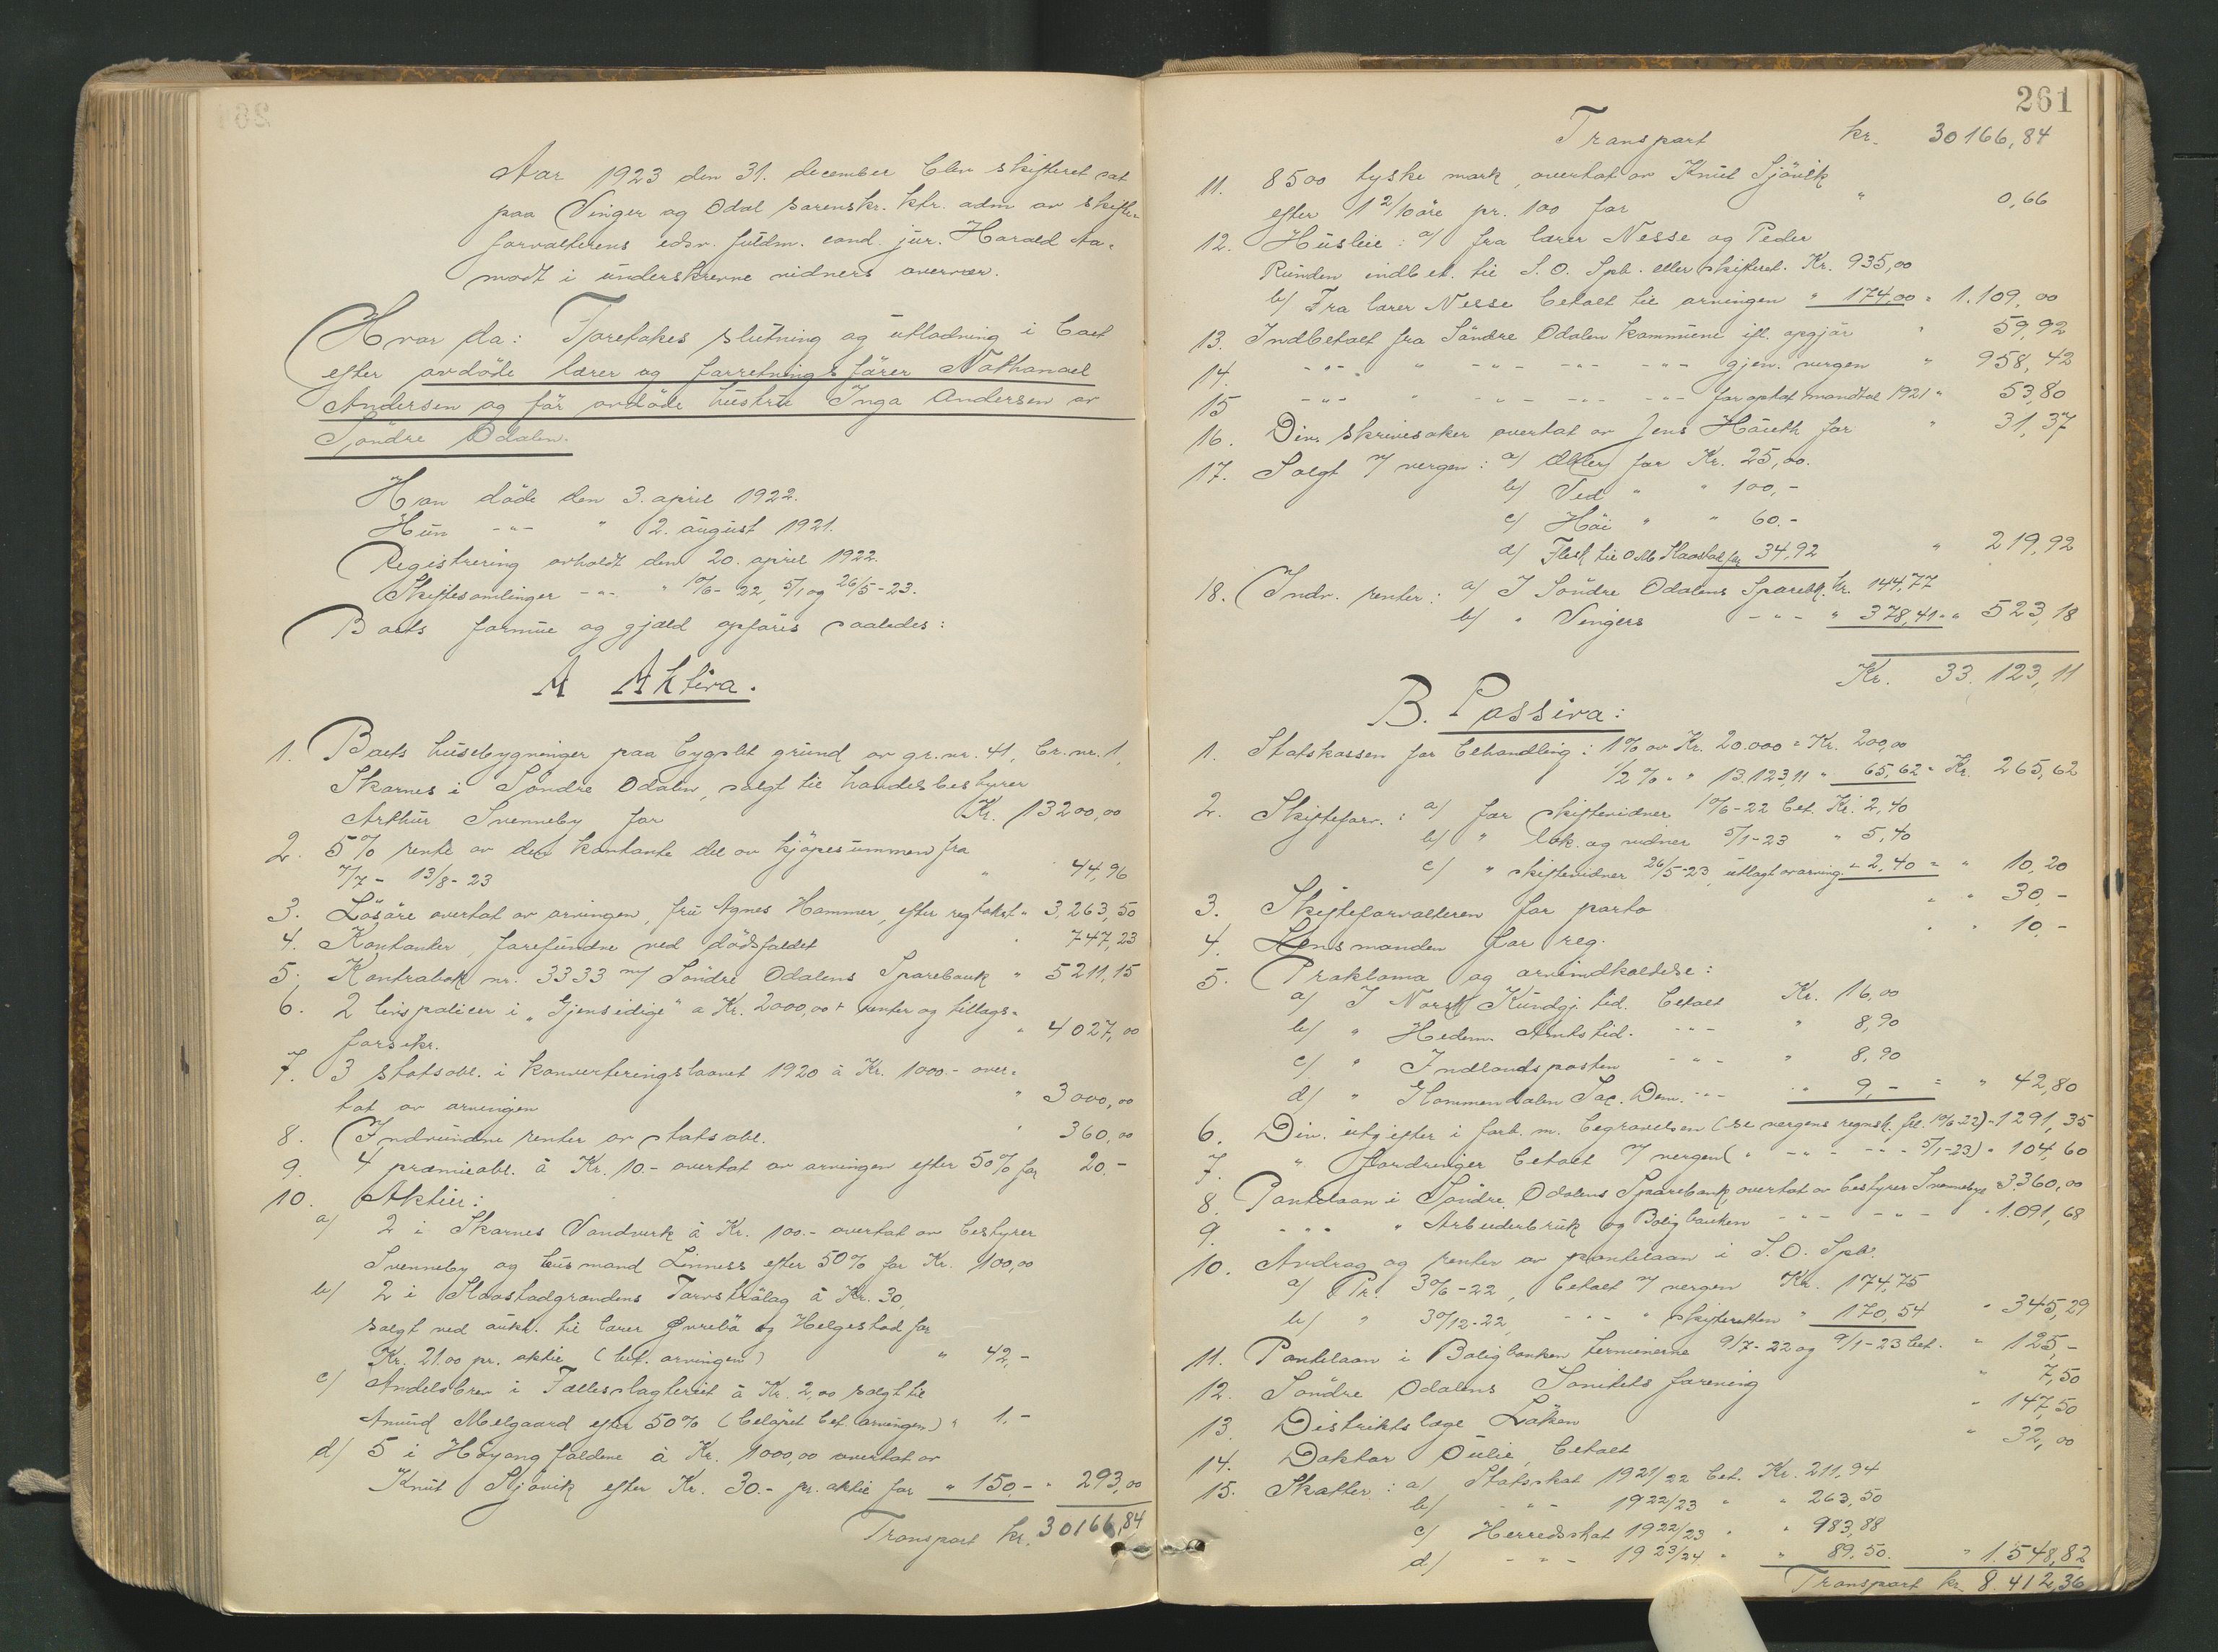 Aar 1923 den 31. december blev skifteret sat
paa Vinger og Odal sorenskr. ktr. adm av skifte-
forvalterens edsv. fuldm. cand. jur. Harald Aa-
modt i underskrevne vidners overvær.
Hvor da: Foretokes slutning og utlodning i boet
efter avdöde lærer og forretningsförer Nathanael
Andersen og för avdöde hustru Inga Andersen av
Söndre Odalen.
Han döde den 3. april 1922.
Hun -"- " 2. august 1921.
Registrering avholdt den 20. april 1922.
Skiftesamlinger -"- " 10/6-22, 5/1 og 26/5-23.
Boets formue og gjæld opföris saaledes:
A Aktiva.
1. Boets husebygninger paa bygslet grund av gr.nr. 41, br.nr. 1,
Skarnes i Söndre Odalen, solgt til handelsbestyrer
Arthur Svenneby for Kr. 13200,00
2. 5% rente av den kontante del av kjöpesummen fra
7/7 - 13/8-23 " 44,96
3. Lösöre overtat av arvingen, fru Agnes Hammer, efter regtakst " 3,263,50
4. Kontanter, forefundne ved dödsfaldet " 747,23
5. Kontrabok nr. 3333 m/ Söndre Odalens Sparebank " 5211,15
6. 2 livspoliser i "Gjensidige" a Kr. 2000,00 + renter og tillegs-
forsikr. " 4027,00
7. 3 statsobl. i konverteringslaanet 1920 à Kr. 1000.- over-
tat av arvingen " 3000,00
8. Indvundne renter av statsobl. " 360,00
9. 4 præmieobl. à Kr. 10- overtat av arvingen efter 50% for 20.-
10. Aktier:
a/ 2 i Skarnes Vandverk à Kr. 100.- overtat av bestyrer
Svenneby og husmand Linness efter 50% for Kr. 100,00
b/ 2 i Slaastadgrændens Torvströlag à Kr. 30,
solgt ved aukt. til lærer Övrebö og Helgestad for
Kr. 21.00 pr. aktie (bet. arvingen) " 42,-
c/ Andelsbrev i Fællesslagteriet à Kr. 2,00 solgt til
Amund Melgaard efter 50% (belöpet bet. arvingen) " 1.-
d/ 5 i Höyangfaldene à Kr. 1000,00 overtat av
Knut Sjövik efter Kr. 30.- pr. aktie for " 150,- " 293,00
Transport kr. 30166,84
261
Transport kr. 30166,84
11. 8500 tyske mark, overtat av Knut Sjövik
efter 1 2/10 öre pr. 100 for " 0,66
12. Husleie: a/ fra lærer Nesse og Peder
Runden indbet. til S. O. Spb. eller skifteret. Kr. 935,00
b/ Fra lærer Nesse betalt til arvingen " 174,00 = 1.109,00
13. Indbetalt fra Söndre Odalen kommune ifl. opgjör " 59,92
14. -"- " -"- -"- -"- gjen. vergen " 958,42
15 -"- " -"- -"- -"- for optat mandtal 1921 " 53,80
16. Div. skrivesaker overtat av Jens Häuth for " 31,37
17. Solgt v/ vergen: a/ Æbler for Kr. 25,00.
b/ Ved " " 100,-
c/ Höi " " 60.-
d/ Flesk til O.M. Slaastad for 34,92 " 219,92
18. Indv. renter: a/ I Söndre Odalens Sparebk. Kr. 144,77
b/ " Vingers -"- " 378,41 = " 523,18
Kr. 33.123,11
B. Passiva:
1. Statskassen for behandling: 1% av Kr. 20.000 = Kr. 200,00
1/2 % " " 13.123,11 " 65,62 = Kr. 265,62
2. Skifteforv.: a/ for skiftevidner 10/6-22 bet. Kr. 2,40
b/ " lok. og vidner 5/1-23 " 5,40
c/ " skiftevidner 26/5-23, utlagt av arving. " 2,40 = " 10,20
3. Skifteforvalteren for porto " " 30,-
4. Lensmanden for reg. " " 10,-
5. Proklama og arveindkaldelse:
a/ I Norsk Kundgj. tid. betalt Kr. 16,00
b/ " Hedem. Amtstid. -"- " 8,90
c/ " Indlandsposten -"- " 8,90
d/ " Glommendalen Soc. Dem. -"- " 9,- = " 42,80
6. Div. utgifter i forb. m. begravelsen (se vergens regnsk. fre. 10/6-22) " 1291,35
7. " fordringer betalt v/ vergen ( " -"- -"- 5/1-23) " 104,60
8. Pantelaan i Söndre Odalens Sparebank overtat av bestyrer Svenneby " 3.360,00
9. -"- " Arbeiderbruk og Boligbanken -"- -"- " 1.091,68
10. Avdrag og renter av pantelaan i S. O. Spb.
a/ Pr. 30/6-22, betalt v/ vergen Kr. 174,75
b/ " 30/12-22, -"- " skifteretten " 170,54 " 345,29
11. Pantelaan i Boligbanken terminerne 9/7-22 og 9/1-23 bet. " 125,-
12. Söndre Odalens Sanitetsforening " 7,50
13. Distriktslæge Löken " 147,50
14. Doktor Oulie, betalt " 32,00
15. Skatter: a/ Statsskat 1921/22 bet. Kr. 211,94
b/ -"- 1922/23 " " 263,50
c/ Herredsskat 1922/23 " " 983,88
d/ -"- 1923/24 " " 89,50. " 1.548,82
Transport kr. 8.412,36